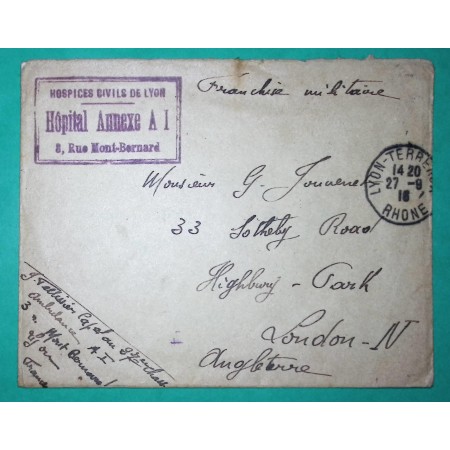 HOSPICES CIVILS DE LYON
Hôpital Annexe A I
8, Rue Mont-Bernard
Franchise militaire
LYON-TERREAUX
14 20
27 -9
16
RHONE
Monsieur G. Jouvenel
33 Sotheby Road
Highbury - Park
London - N
Angleterre
Caporal au
Ambulance A I
3 r. Mont Bernard
Lyon
France